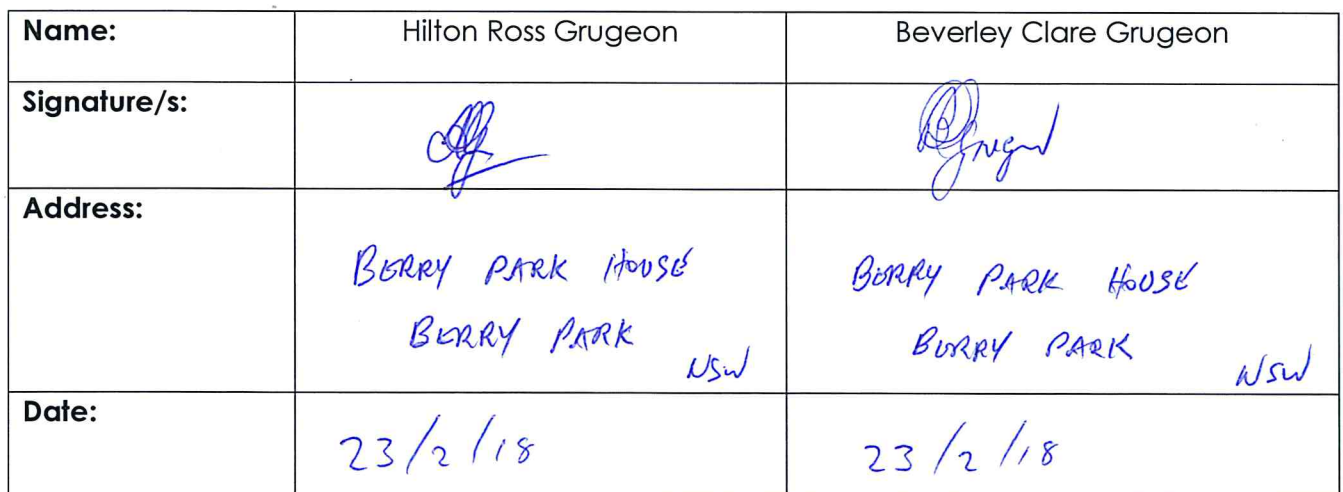 Name: Hilton Ross Grugeon Beverley Clare Grugeon
Signature/s:
Address:
BERRY PARK HOUSE BERRY PARK HOUSE
BERRY PARK BERRY PARK
NSW NSW
Date: 23/2/18 23/2/18